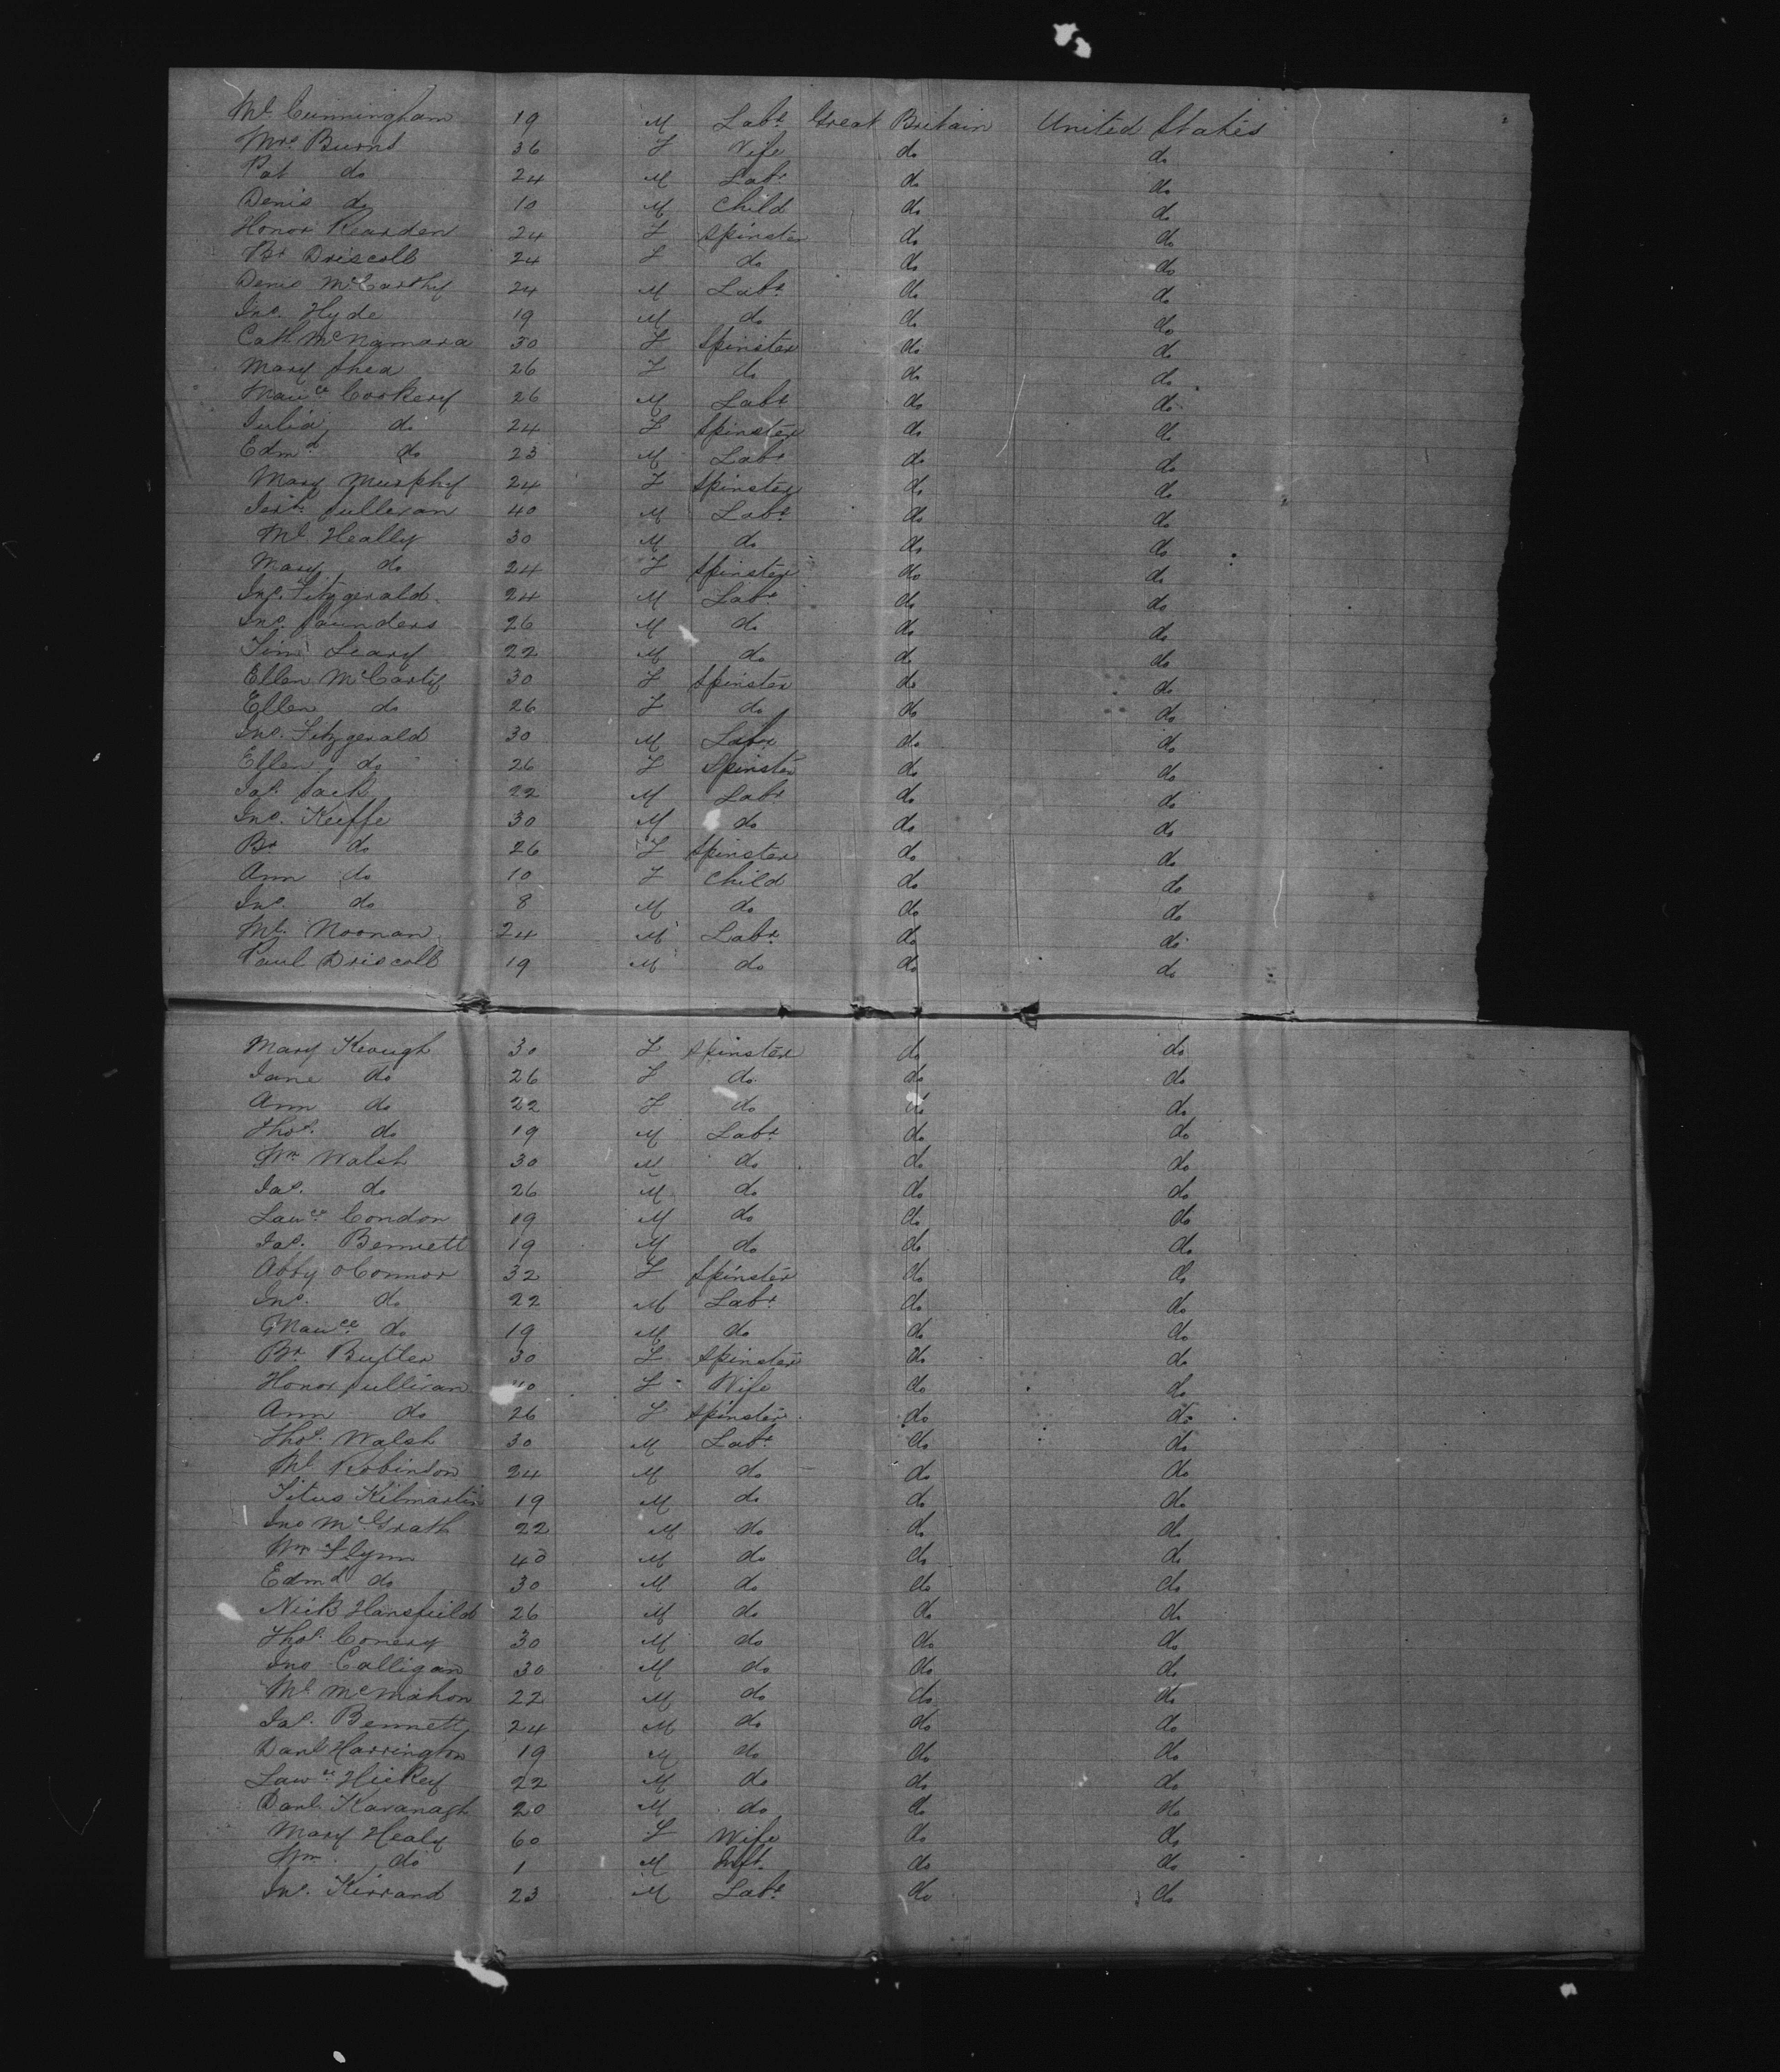 Ml Cunningham 19 M Labr Great Britain United States
Mrs Burns 36 F Wife do do
Pat do 24 M Labr do do
Denis do 10 M Child do do
Honor Rearden 24 F Spinster do do
Bt Driscoll 24 F do do do
Denis McCarthy 24 M Labr do do
Jno. Hyde 19 M do do do
Cath McNamara 30 F Spinster do do
Mary Shea 26 F do do do
Mauce Corkery 26 M Labr do do
Julia do 24 F Spinster do do
Edmd do 23 M Labr do do
Mary Murphy 24 F Spinster do do
Jerh Sullivan 40 M Labr do do
Ml Heally 30 M do do do
Mary do 24 F Spinster do do
Jno. Fitzgerald 24 M Labr do do
Jno. Saunders 26 M do do do
Tim Leary 22 M do do do
Ellen McCarty 30 F Spinster do do
Ellen do 26 F do do do
Jno. Fitzgerald 30 M Labr do do
Ellen do 26 F Spinster do do
Jas. Jack 22 M Labr do do
Jno. Keiffe 30 M do do do
Bt do 26 F Spinster do do
Ann do 10 F Child do do
Jno. do 8 M do do do
Ml. Noonan 24 M Labr do do
Paul Driscoll 19 M do do do
Mary Keough 30 F Spinster do do
Jane do 26 F do do do
Ann do 22 F do do do
Thos. do 19 M Labr do do
Wm Walsh 30 M do do do
Jas. do 26 M do do do
Lawce Condon 19 M do do do
Jas. Bennett 19 M do do do
Abby oConnor 32 F Spinster do do
Jno. do 22 M Labr do do
Mauce do 19 M do do do
Bt. Butler 30 F Spinster do do
Honor Sullivan F Wife do do
Ann do 26 F Spinster do do
Thos. Walsh 30 M Labr do do
Ml Robinson 24 M do do do
Titus Kilmartin 19 M do do do
Jno McGrath 22 M do do do
Wm Flynn 40 M do do do
Edmd do 30 M do do do
Nick Hansfield 26 M do do do
Thos. Conery 30 M do do do
Jno Calligan 30 M do do do
Ml McMahon 22 M do do do
Jas. Bennett 24 M do do do
Danl Harrington 19 M do do do
Lawce Hickey 22 M do do do
Danl Kavanagh 20 M do do do
Mary Healy 60 F Wife do do
Wm do 1 M Inft. do do
Jno. Kirrand 23 M Labr do do